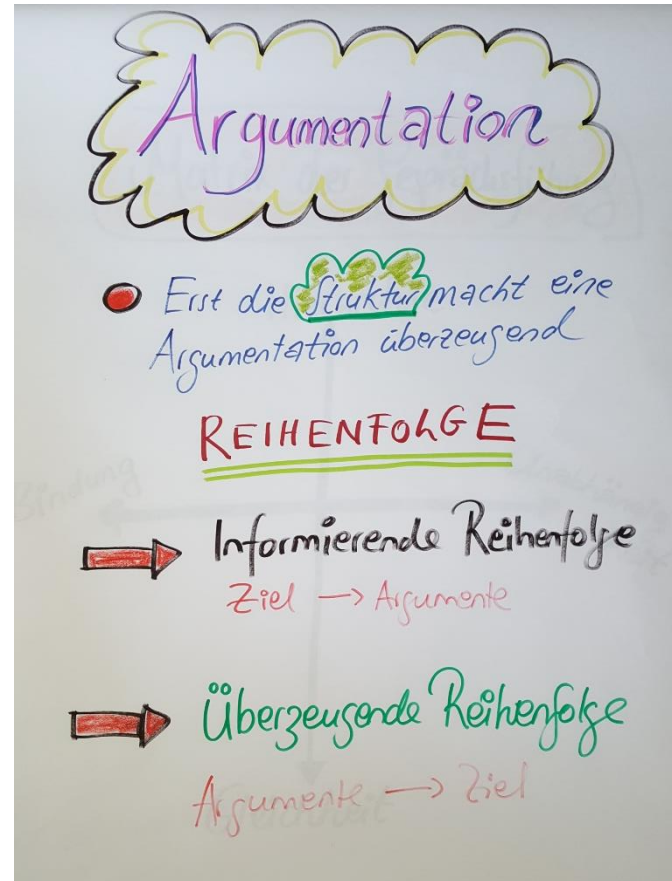 Argumentation
Erst die Struktur macht eine
Argumentation überzeugend
REIHENFOLGE
Informierende Reihenfolge
Ziel → Argumente
Überzeugende Reihenfolge
Argumente → Ziel
Bindung